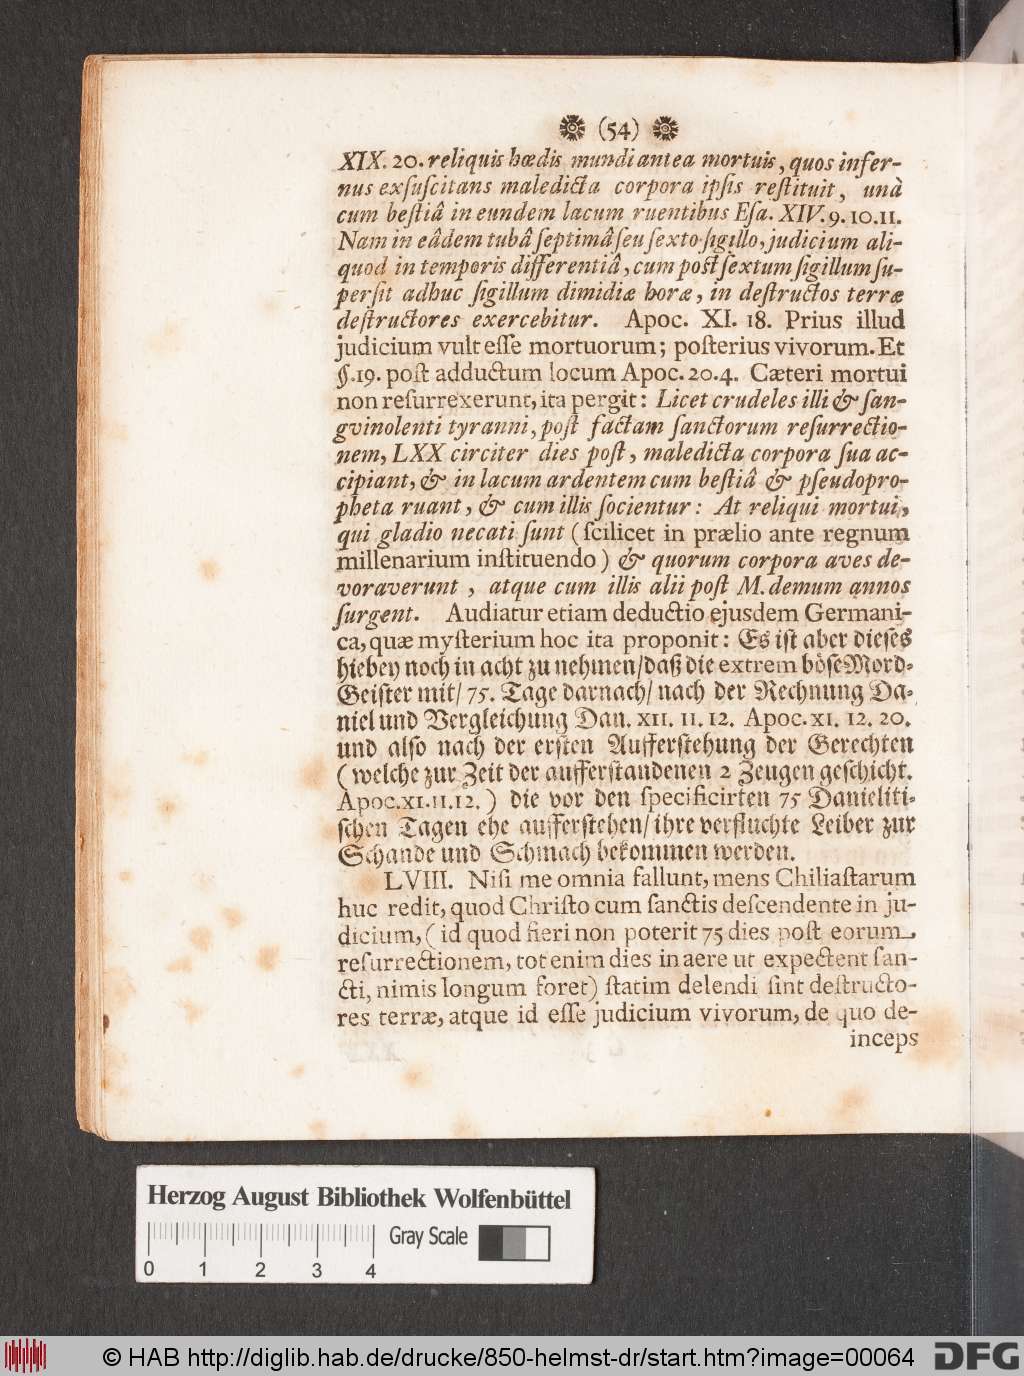 (54)
XIX. 20. reliquis hœdis mundi antea mortuis, quos infer-
nus exſuſcitans maledicta corpora ipſis reſtituit, unà
cum beſtiâ in eundem lacum ruentibus Eſa. XIV. 9. 10. 11.
Nam in eâdem tubâ ſeptimâ ſeu ſexto ſigillo, judicium ali-
quod in temporis differentiâ, cum poſt ſextum ſigillum ſu-
perſit adhuc ſigillum dimidiæ horæ, in deſtructos terræ
deſtructores exercebitur. Apoc. XI. 18. Prius illud
judicium vult eſſe mortuorum; poſterius vivorum. Et
§. 19. poſt adductum locum Apoc. 20. 4. Cæteri mortui
non reſurrexerunt, ita pergit: Licet crudeles illi & ſan-
gvinolenti tyranni, poſt factam ſanctorum reſurrectio-
nem, LXX circiter dies poſt, maledicta corpora ſua ac-
cipiant, & in lacum ardentem cum beſtiâ & pſeudopro-
pheta ruant, & cum illis ſocientur: At reliqui mortui,
qui gladio necati ſunt (ſcilicet in prælio ante regnum
millenarium inſtituendo) & quorum corpora aves de-
voraverunt, atque cum illis alii poſt M. demum annos
ſurgent. Audiatur etiam deductio ejusdem Germani-
ca, quæ myſterium hoc ita proponit: Es iſt aber dieſes
hiebey noch in acht zu nehmen/ daß die extrem böſe Mord-
Geiſter mit/ 75. Tage darnach/ nach der Rechnung Da-
niel und Vergleichung Dan. XII. 11. 12. Apoc. XI. 12. 20.
und alſo nach der erſten Aufferſtehung der Gerechten
(welche zur Zeit der aufferſtandenen 2 Zeugen geſchicht.
Apoc. XI. 11. 12.) die vor den ſpecificirten 75 Danieliti-
ſchen Tagen ehe aufferſtehen/ ihre verfluchte Leiber zur
Schande und Schmach bekommen werden.
LVIII. Niſi me omnia fallunt, mens Chiliaſtarum
huc redit, quod Chriſto cum ſanctis deſcendente in ju-
dicium, (id quod fieri non poterit 75 dies poſt eorum
reſurrectionem, tot enim dies in aere ut expectent ſan-
cti, nimis longum foret) ſtatim delendi ſint deſtructo-
res terræ, atque id eſſe judicium vivorum, de quo de-
inceps
Herzog August Bibliothek Wolfenbüttel
Gray Scale
0 1 2 3 4
© HAB http://diglib.hab.de/drucke/850-helmst-dr/start.htm?image=00064
DFG